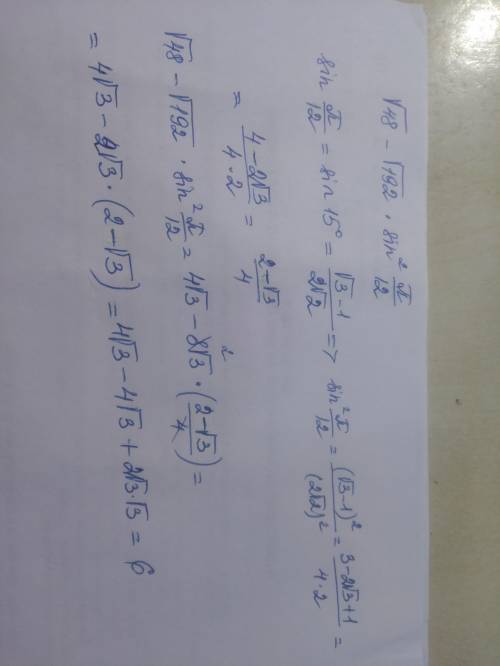 √48 − √192 · sin² π/12
sin π/12 = sin 15° = (√3 − 1)/(2√2) => sin² π/12 = (√3 − 1)²/(2√2)² = (3 − 2√3 + 1)/(4·2) =
= (4 − 2√3)/(4·2) = (2 − √3)/4
√48 − √192 · sin² π/12 = 4√3 − 8√3 2 · ((2 − √3)/4) =
= 4√3 − 2√3 · (2 − √3) = 4√3 − 4√3 + 2√3·√3 = 6